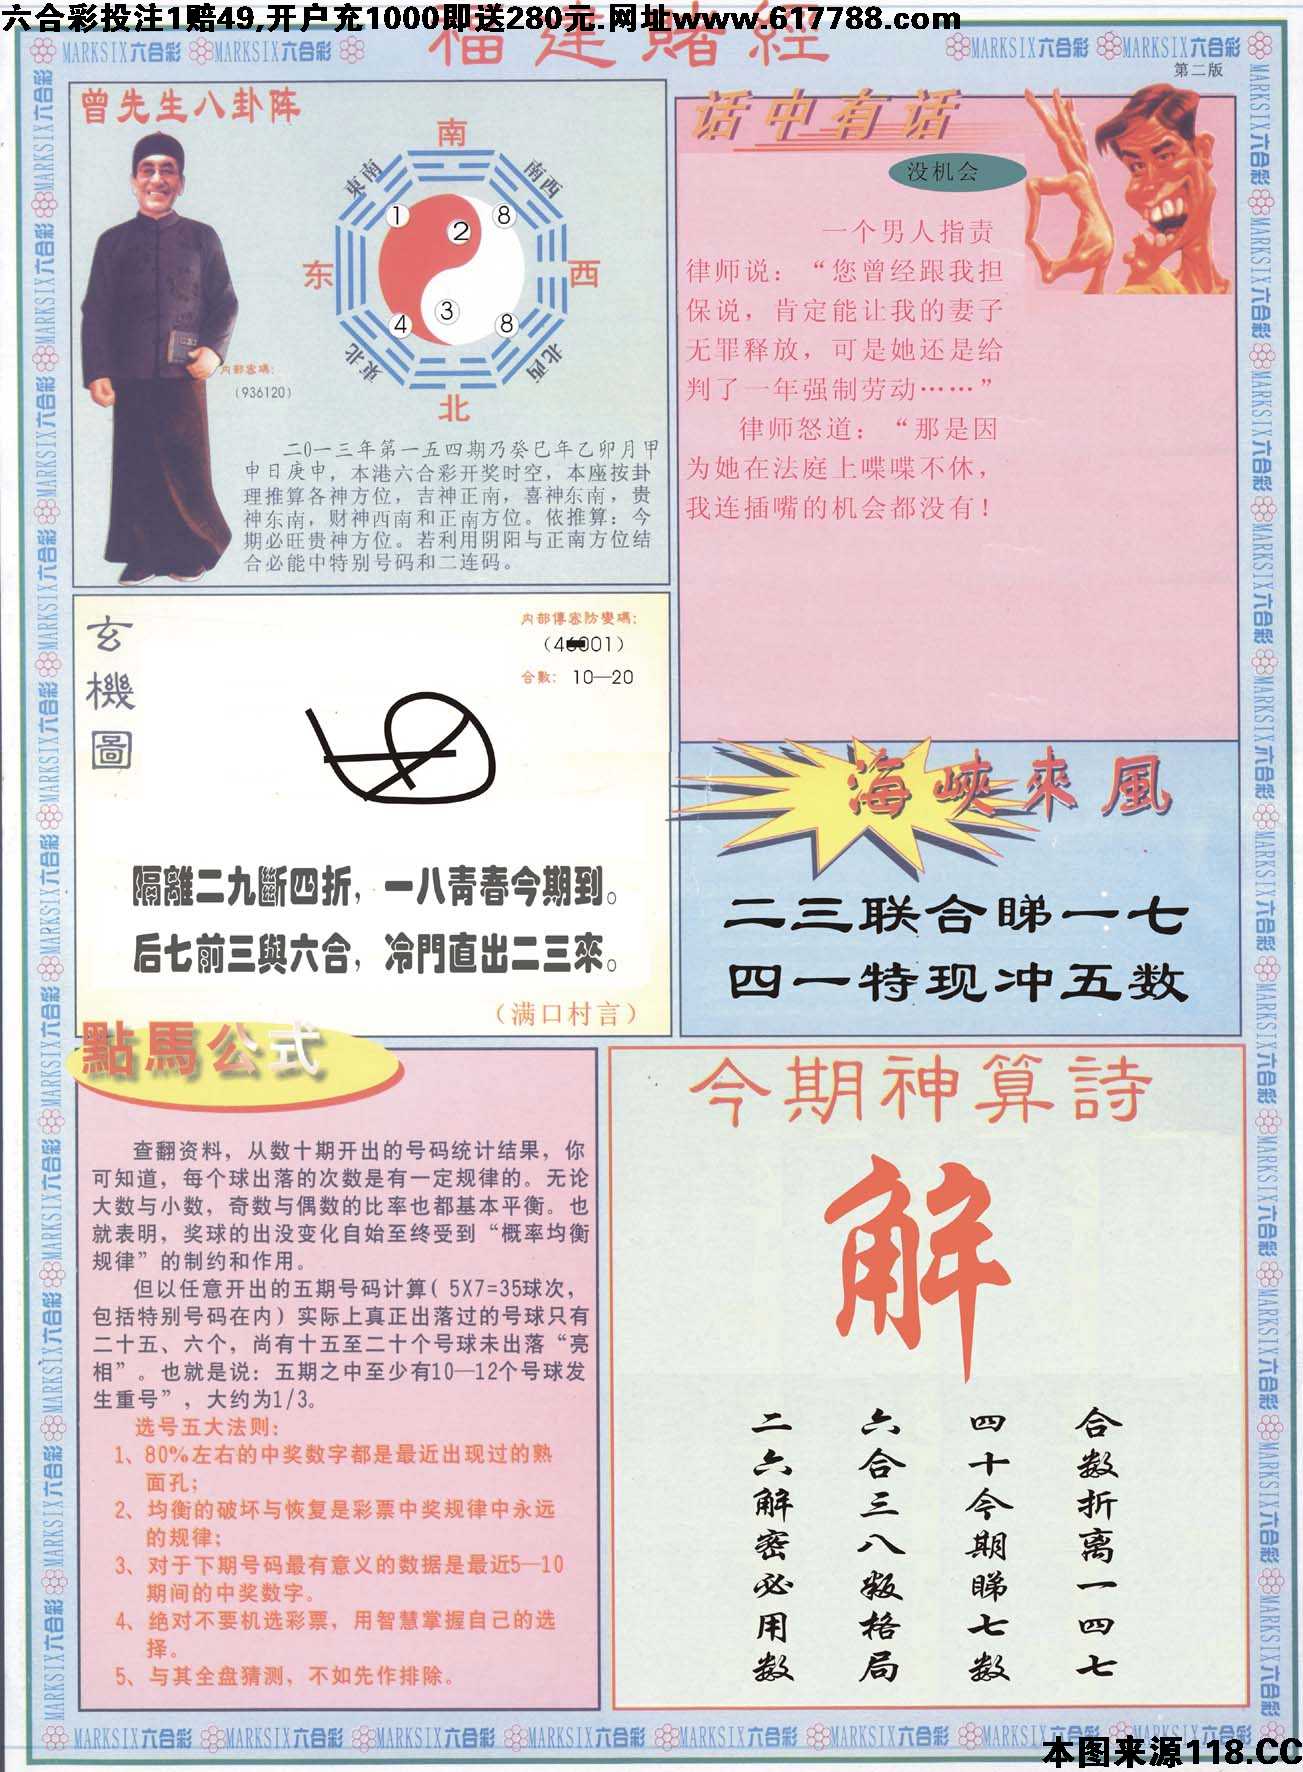 六合彩投注1赔49,开户充1000即送280元.网址www.617788.com
福建赌經
MARKSIX六合彩 MARKSIX六合彩
MARKSIX六合彩 MARKSIX六合彩
第二版
曾先生八卦阵
南
東南
南西
1
2
8
东
西
4
3
8
東北
北西
北
内部密碼：
（936120）
二0一三年第一五四期乃癸巳年乙卯月甲
申日庚申，本港六合彩开奖时空，本座按卦
理推算各神方位，吉神正南，喜神东南，贵
神东南，财神西南和正南方位。依推算：今
期必旺贵神方位。若利用阴阳与正南方位结
合必能中特别号码和二连码。
话中有话
没机会
一个男人指责
律师说：“您曾经跟我担
保说，肯定能让我的妻子
无罪释放，可是她还是给
判了一年强制劳动……”
律师怒道：“那是因
为她在法庭上喋喋不休，
我连插嘴的机会都没有！
玄機圖
内部傳密防變碼：
合數：10—20
隔離二九斷四折，一八青春今期到。
后七前三與六合，冷門直出二三來。
（满口村言）
海峽來風
二三联合睇一七
四一特现冲五数
點馬公式
查翻资料，从数十期开出的号码统计结果，你
可知道，每个球出落的次数是有一定规律的。无论
大数与小数，奇数与偶数的比率也都基本平衡。也
就表明，奖球的出没变化自始至终受到“概率均衡
规律”的制约和作用。
但以任意开出的五期号码计算（5X7=35球次，
包括特别号码在内）实际上真正出落过的号球只有
二十五、六个，尚有十五至二十个号球未出落“亮
相”。也就是说：五期之中至少有10—12个号球发
生重号”，大约为1/3。
选号五大法则：
1、80%左右的中奖数字都是最近出现过的熟
面孔；
2、均衡的破坏与恢复是彩票中奖规律中永远
的规律；
3、对于下期号码最有意义的数据是最近5—10
期间的中奖数字。
4、绝对不要机选彩票，用智慧掌握自己的选
择。
5、与其全盘猜测，不如先作排除。
今期神算詩
解
合数折离一四七
四十今期睇七数
六合三八叛格局
二六解密必用数
MARKSIX六合彩 MARKSIX六合彩 MARKSIX六合彩 MARKSIX六合彩 MARKSIX六合彩 MARKSIX六合彩 MARKSIX六合彩
本图来源118.CC